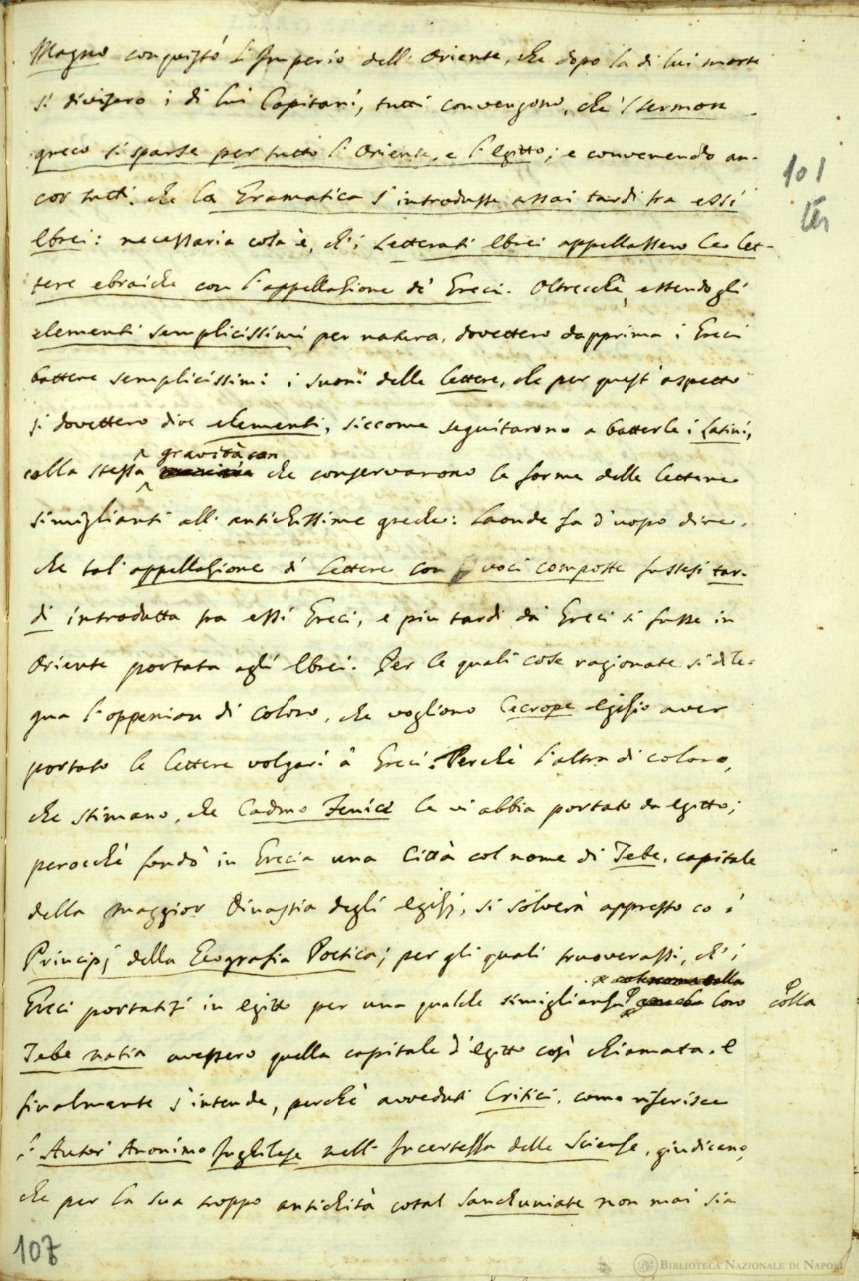 Magno conquistò l'Imperio dell'Oriente, che dopo la di lui morte
si divisero i di lui Capitani, tutti convengono, che 'l sermon
greco si sparse per tutto l'Oriente, e l'Egitto; e convenendo an-
cor tutti, che la Gramatica s'introdusse assai tardi tra essi
Ebrei: necessaria cosa è, ch'i Letterati Ebrei appellassero le let-
tere ebraiche con l'appellazione de' Greci. Oltrecché, essendo gli
elementi semplicissimi per natura, dovettero dapprima i Greci
battere semplicissimi i suoni delle lettere, che per quest'aspetto
si dovettero dire elementi, siccome seguitarono a batterle i Latini,
colla stessa gravità con che conservarono le forme delle lettere
simiglianti all'antichissime greche: Laonde fa d'uopo dire,
che tal'appellazione di lettere con voci composte fussesi tar-
di introdutta tra essi Greci, e più tardi da' Greci si fusse in
Oriente portata agli Ebrei. Per le quali cose ragionate si dile-
gua l'oppenion di coloro, che vogliono Cecrope Egizio aver
portato le lettere volgari a' Greci. Perchè l'altra di coloro,
che stimano, che Cadmo Fenice le vi abbia portato da Egitto;
perocchè fondò in Grecia una Città col nome di Tebe, capitale
della maggior Dinastia degli Egizj, si solverà appresso co i
Principj della Geografia Poetica; per gli quali truoverassi, ch'i
Greci portatisi in Egitto per una qualche simiglianza colla loro
Tebe natia avessero quella capitale d'Egitto così chiamata. E
finalmente s'intende, perchè avveduti Critici, come riferisce
l'Autor' Anonimo Inghilese nell'Incertezza delle Scienze, giudicano,
che per la sua troppo antichità cotal Sancuniate non mai sia
101
ter
107
BIBLIOTECA NAZIONALE DI NAPOLI